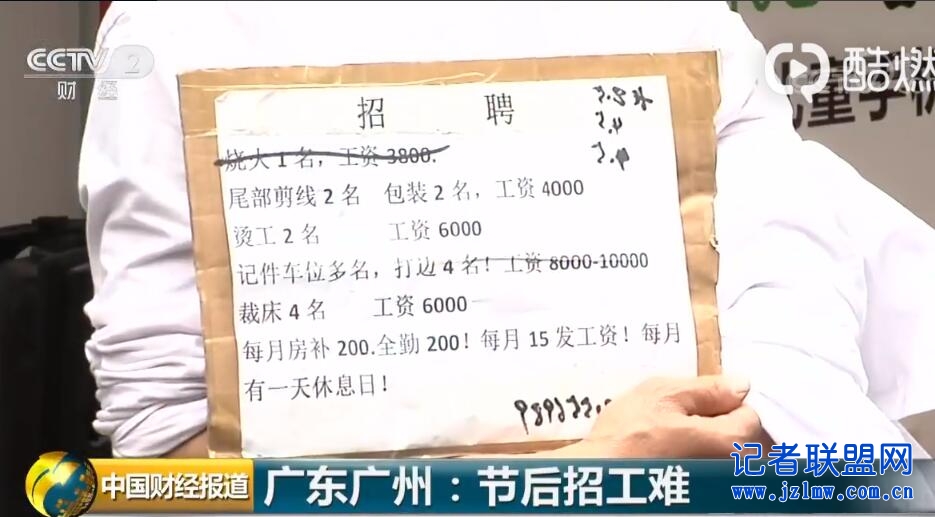 CCTV 2
财 经
酷燃
童手机
招 聘
烧火 1 名，工资 3800.
尾部剪线 2 名 包装 2 名，工资 4000
烫工 2 名 工资 6000
记件车位多名，打边 4 名！工资 8000-10000
裁床 4 名 工资 6000
每月房补 200.全勤 200！每月 15 发工资！每月
有一天休息日！
中国财经报道
广东广州：节后招工难
记者联盟网
www.jzlmw.com.cn